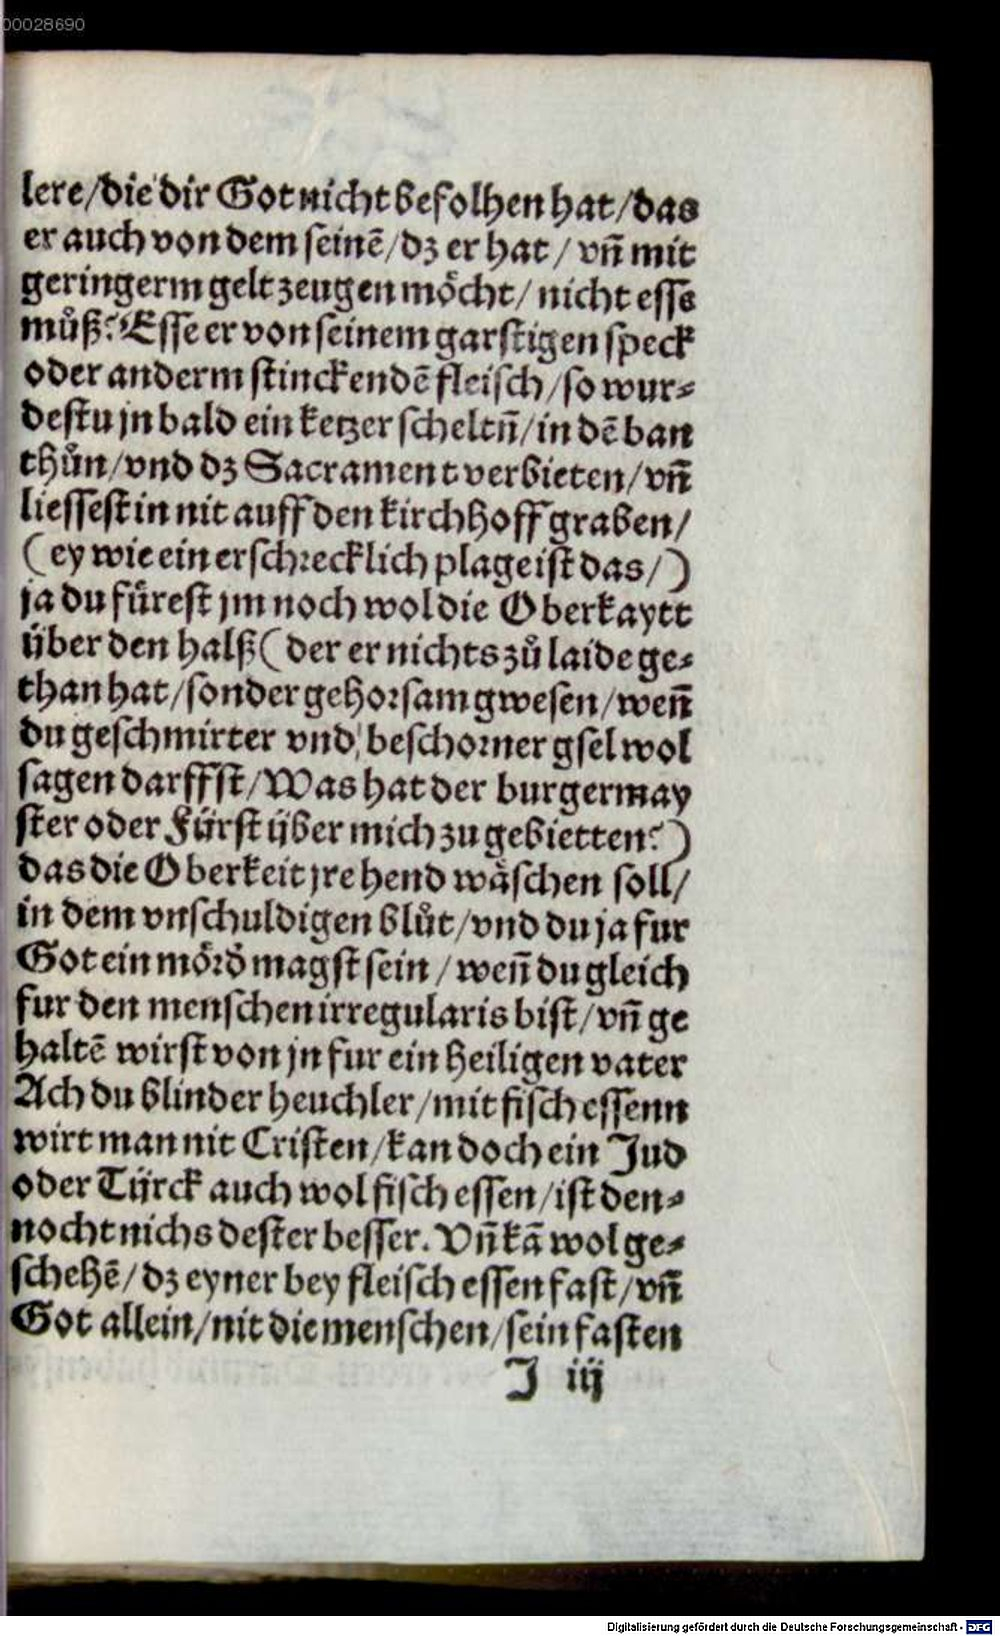 00028690
lere/die dir Got nicht befolhen hat/das
er auch von dem seinē/dz er hat/ vn̄ mit
geringerm gelt zeugen mo&#x364;cht/ nicht esse
můß? Esse er von seinem garstigen speck
oder anderm stinckendē fleisch/so wur⸗
destu jn bald ein ketzer scheltn̄/in dē ban
thůn/vnd dz Sacrament verbieten/vn̄
liessest in nit auff den kirchhoff graben/
(ey wie ein erschꝛecklich plage ist das/)
ja du fürest jm noch wol die Oberkaytt
über den halß(der er nichts zů laide ge⸗
than hat/sonder gehoꝛsam gwesen/wen̄
du geschmirter vnd beschoꝛner gsel wol
sagen darffst/Was hat der burgermay
ster oder Fürst über mich zu gebietten?)
das die Oberkeit jre hend wäschen soll/
in dem vnschuldigen blůt/vnd du ja fur
Got ein möꝛd̕ magst sein/wen̄ du gleich
fur den menschen irregularis bist/vn̄ ge
haltē wirst von jn fur ein heiligen vater
Ach du blinder heuchler/mit fisch essenn
wirt man nit Cristen/kan doch ein Jud
oder Türck auch wol fisch essen/ist den⸗
nocht nichs dester besser. Vn̄ kā wol ge⸗
schehē/dz eyner bey fleisch essen fast/vn̄
Got allein/nit die menschen/sein fasten
J iij
Digitalisierung gefördert durch die Deutsche Forschungsgemeinschaft - DFG